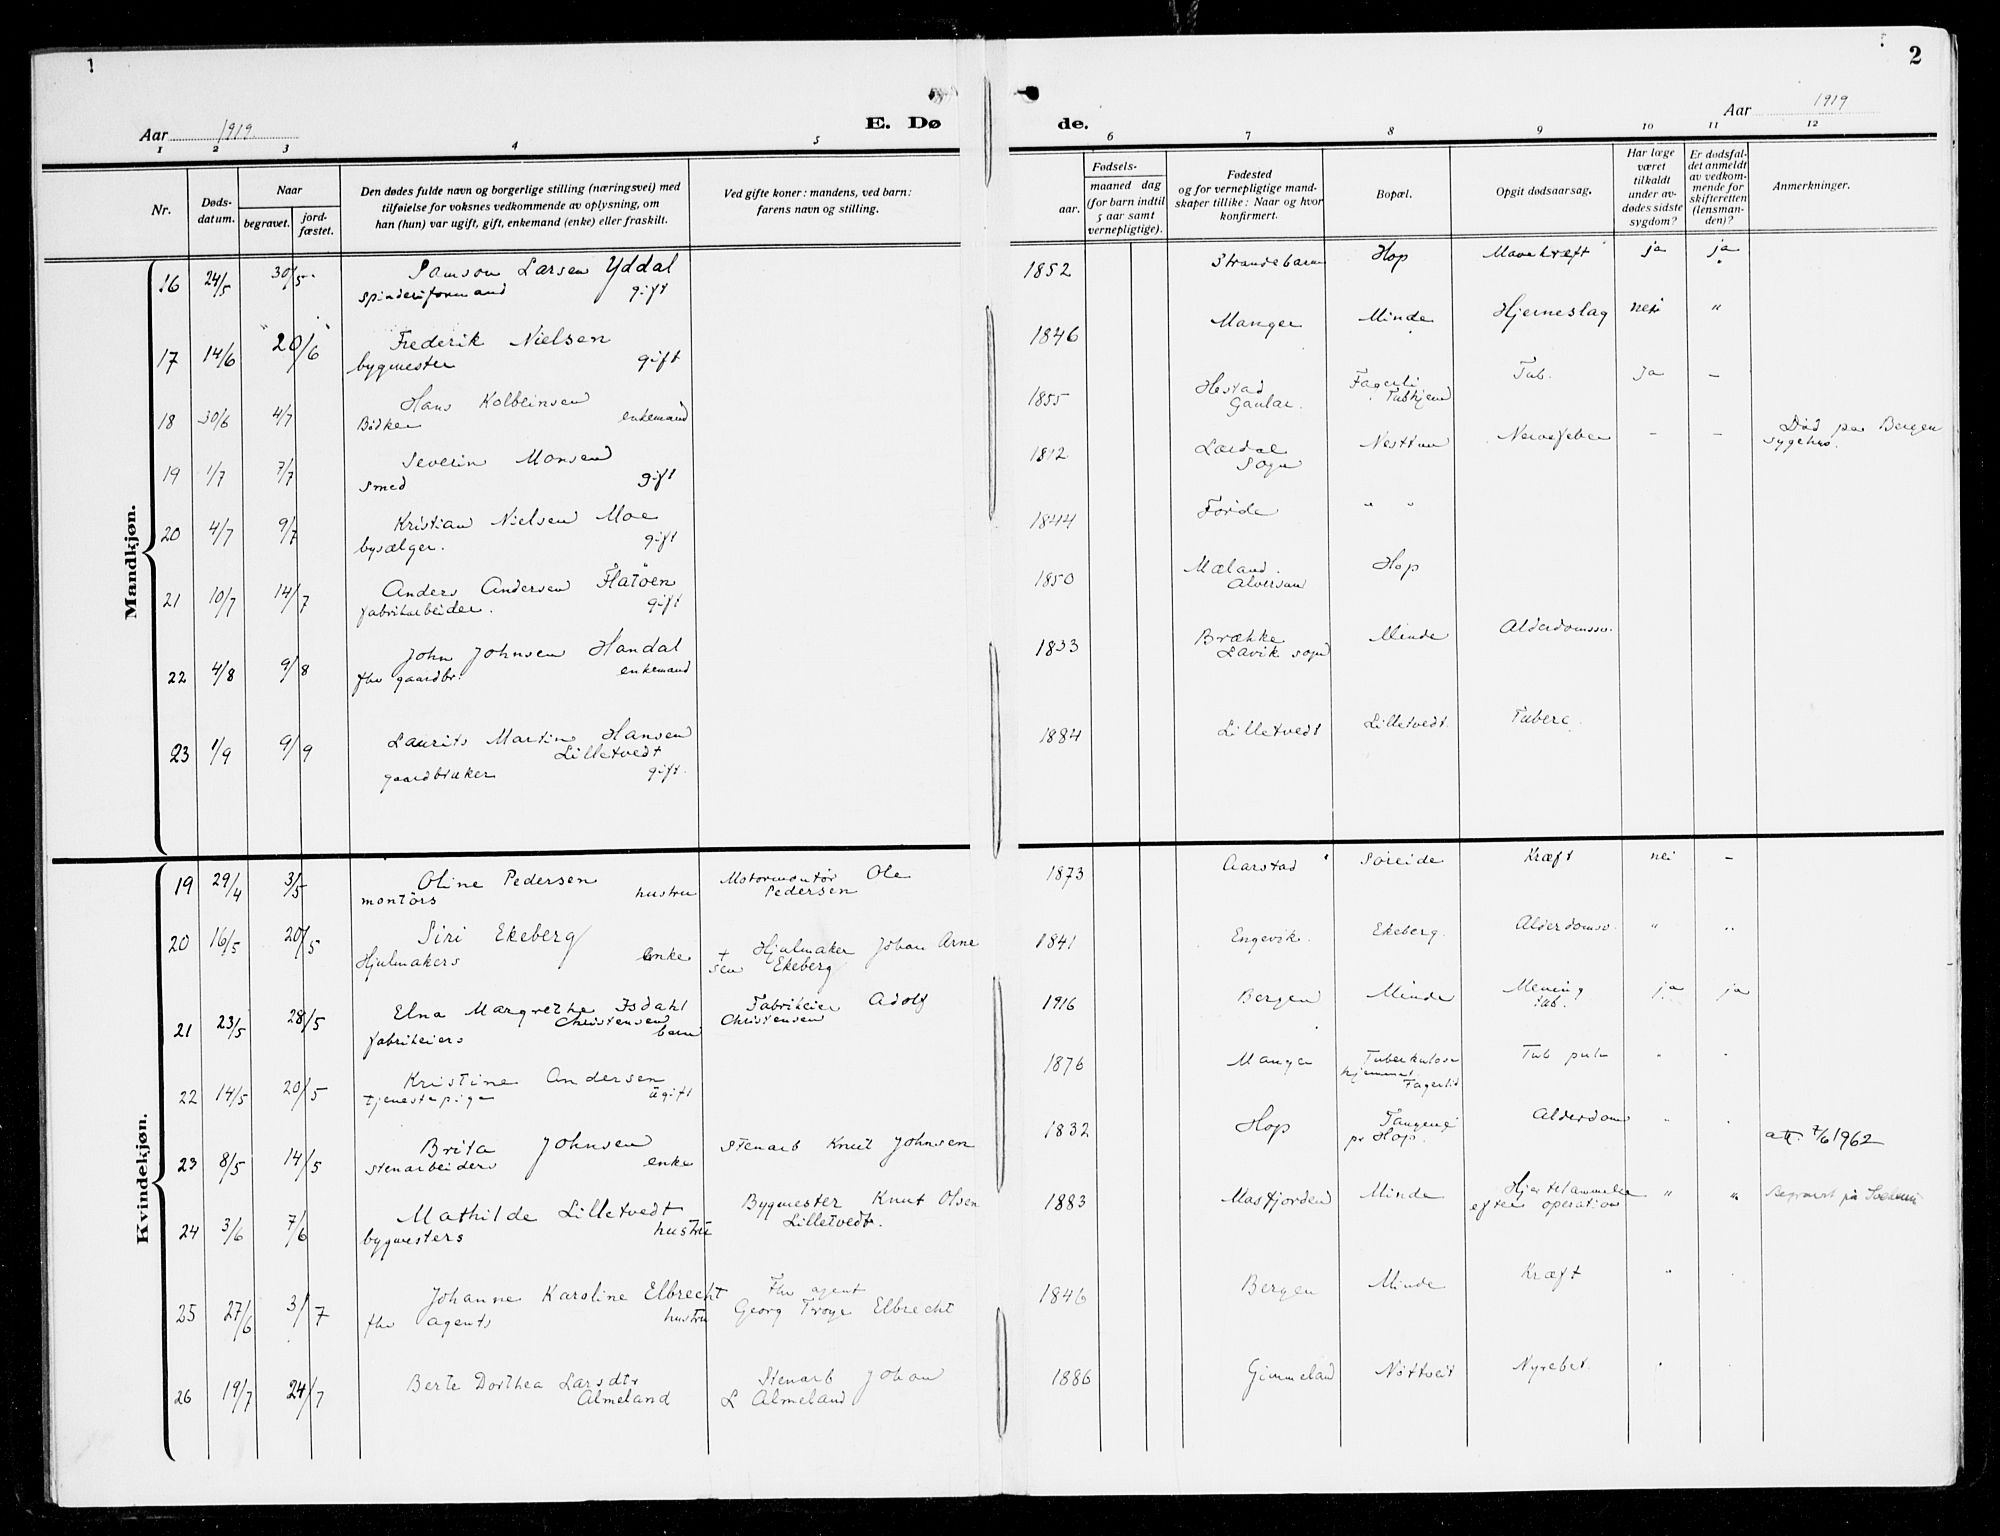 1
2
Aar 1919.
E. Dø
de.
Aar 1919
1 2 3 4 5 6 7 8 9 10 11 12
Nr.
Døds-
datum.
Naar
begravet.
jord-
fæstet.
Den dødes fulde navn og borgerlige stilling (næringsvei) med
tilføielse for voksnes vedkommende av oplysning, om
han (hun) var ugift, gift, enkemand (enke) eller fraskilt.
Ved gifte koner: mandens, ved barn:
farens navn og stilling.
Fødsels-
aar.
maaned dag
(for barn indtil
5 aar samt
vernepligtige).
Fødested
og for vernepligtige mand-
skaper tillike: Naar og hvor
konfirmert.
Bopæl.
Opgit dødsaarsag.
Har læge
været
tilkaldt
under av-
dødes sidste
sygdom?
Er dødsfal-
det anmeldt
av vedkom-
mende for
skifteretten
(lensman-
den)?
Anmerkninger.
Mandkjøn.
16 24/5 30/5 Samson Larsen Yddal 1852 Strandebarm Hop Mavekræft ja ja
spinderiformand gift
17 14/6 20/6 Frederik Nielsen 1846 Manger Minde Hjerneslag nei "
bygmester gift
18 30/6 4/7 Hans Kolbeinsen 1855 Hestad Fagerli Tub. Ja -
Bødker enkemand Gaular. Tubhjem
19 1/7 7/7 Severin Monsen 1812 Lærdal Nesttun Nervefeber - - Død paa Bergen
smed gift Sogn sygehus.
20 4/7 9/7 Kristian Nielsen Moe 1844 Førde " "
bysælger. gift
21 10/7 14/7 Anders Andersen Flatøen 1850 Mæland. Hop
fabrikarbeider. gift Alversun
22 4/8 9/8 John Johnsen Handal 1833 Brække Minde Alderdomssv.
fhv gaardbr. enkemand Lavik sogn
23 1/9 9/9 Laurits Martin Hansen 1884 Lilletvedt Lilletvedt Tuberc.
Lilletvedt
gaardbruker gift.
Kvindekjøn.
19 29/4 3/5 Oline Pedersen Motormontør Ole 1873 Aarstad Søreide Kræft nei -
montørs hustru Pedersen
20 16/5 20/5 Siri Ekeberg + Hjulmaker Johan Arne 1841 Engevik. Ekeberg. Alderdomsv. " "
Hjulmakers enke sen Ekeberg
21 23/5 28/5 Elna Margrethe Isdahl Fabrikeier Adolf 1916 Bergen Minde Mening ja ja
Christensen Christensen tub.
fabrikeiers barn
22 14/5 20/5 Kristine Andersen 1876 Manger Tuberkulose Tub pulm " "
tjenestepige ugift hjemmet Fagerlid
23 8/5 14/5 Brita Johnsen Stenarb Knut Johnsen 1832 Hop Tangene Alderdom " "
stenarbeiders enke pr Hop. att. 7/6 1962
24 3/6 7/6 Mathilde Lilletvedt Bygmester Knut Olsen 1883 Masfjorden Minde Hjertelammelse " " Begravet på
bygmesters hustru Lilletvedt. efter operation
25 27/6 3/7 Johanne Karoline Elbrecht Fhv agent 1846 Bergen Minde Kræft "
fhv agents hustru Georg Troye Elbrecht
26 19/7 24/7 Berte Dorthea Larsdtr Stenarb Johan 1886 Gimmeland Nøttveit Nyrebet. "
Almeland L Almeland